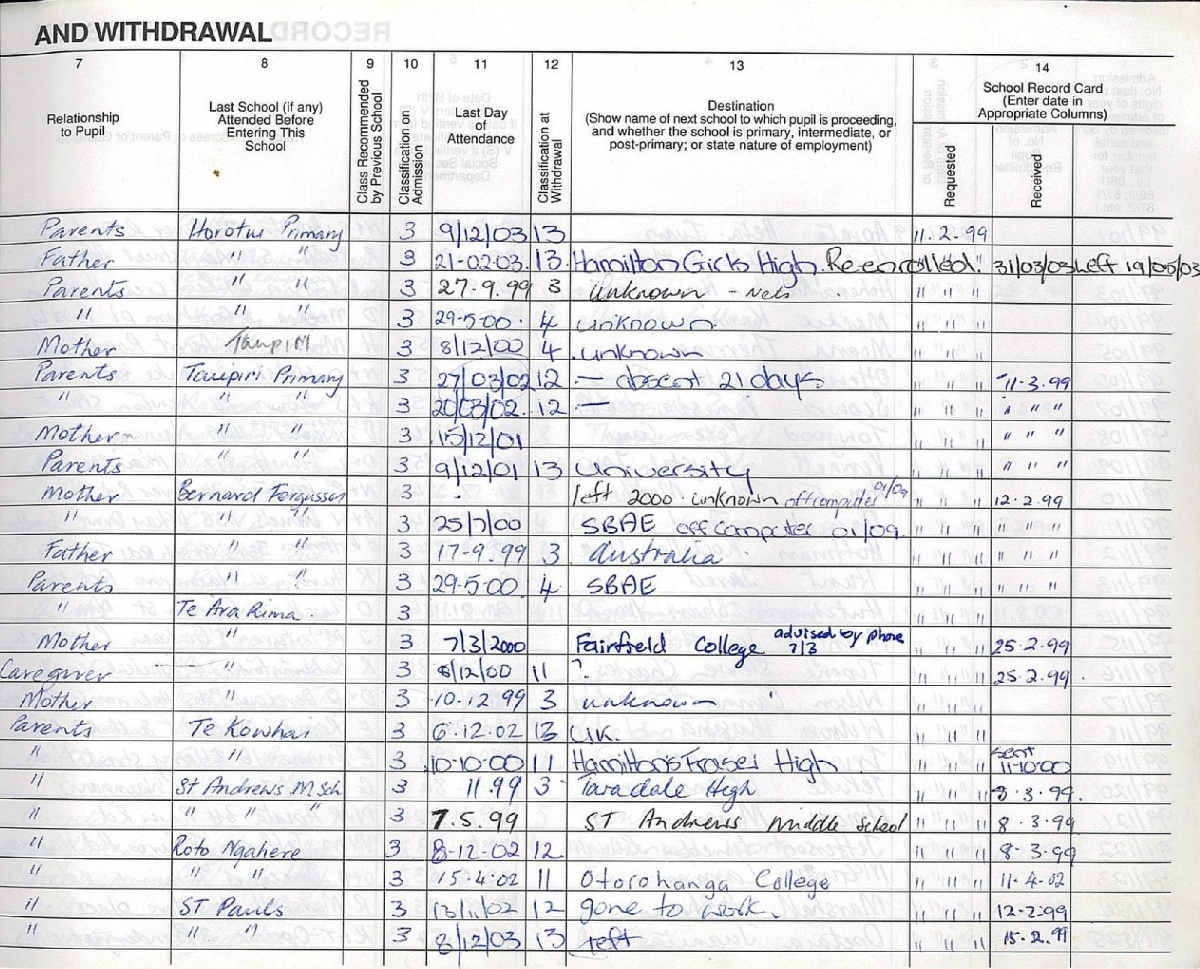 AND WITHDRAWAL
7 8 9 10 11 12 13 14
Relationship to Pupil
Last School (if any) Attended Before Entering This School
Class Recommended by Previous School
Classification on Admission
Last Day of Attendance
Classification at Withdrawal
Destination
(Show name of next school to which pupil is proceeding, and whether the school is primary, intermediate, or post-primary; or state nature of employment)
School Record Card (Enter date in Appropriate Columns)
Requested
Received
Parents Horotiu Primary 3 9/12/03 13 11.2.99
Father " " 3 21-02-03. 13. Hamilton Girls High. Re-enrolled. " 31/03/03 Left 19/05/03
Parents " " 3 27-9.99 3 unknown - Nets " " "
" " " 3 29-5-00. 4 unknown " " "
Mother Taupiri 3 8/12/00 4 unknown " " "
Parents Taupiri Primary 3 27/03/02 12 - absent 21 days " " " 11-3.99
" " " 3 20/03/02. 12 - " " " " " "
Mother " " 3 15/12/01 " " " " " "
Parents " " 3 9/12/01 13 University " " " " " "
Mother Bernard Fergusson 3 left 2000. unknown off computer 01/09 " " " 12-2.99
" " " 3 25/7/00 SBAE off computer 01/09. " " " " " "
Father " " 3 17-9.99 3 Australia " " " " " "
Parents " " 3 29.5.00 4 SBAE " " " " " "
" Te Ara Rima. 3 " " "
Mother " 3 7/3/2000 Fairfield College advised by phone 7/3 " " " 25-2.99
Caregiver " 3 8/12/00 11 ? " " " 25-2.99.
Mother " 3 10.12 99 3 unknown " " "
Parents Te Kowhai 3 6.12.02 13 U.K. " " "
" " 3 10-10-00 11 Hamilton's Fraser High " " " sent 11-10-00
" St Andrews M Sch 3 11.99 3 Taradale High " " " 8-3.99.
" " " " 3 7.5.99 ST Andrews Middle School " " " 8-3-99
" Roto Ngahere 3 8-12-02 12 " " " 8-3-99
" " " 3 15.4.02 11 Otorohanga College " " " 11-4-02
" ST Pauls 3 13/11/02 12 gone to work. " " " 12-2-99
" " " 3 8/12/03 13 left " " " 15.2.99